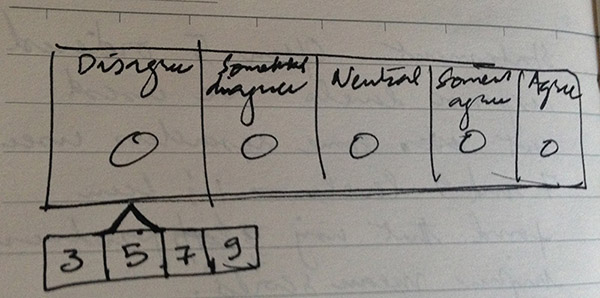 Disagree Somewhat disagree Neutral Somewhat agree Agree
3 5 7 9